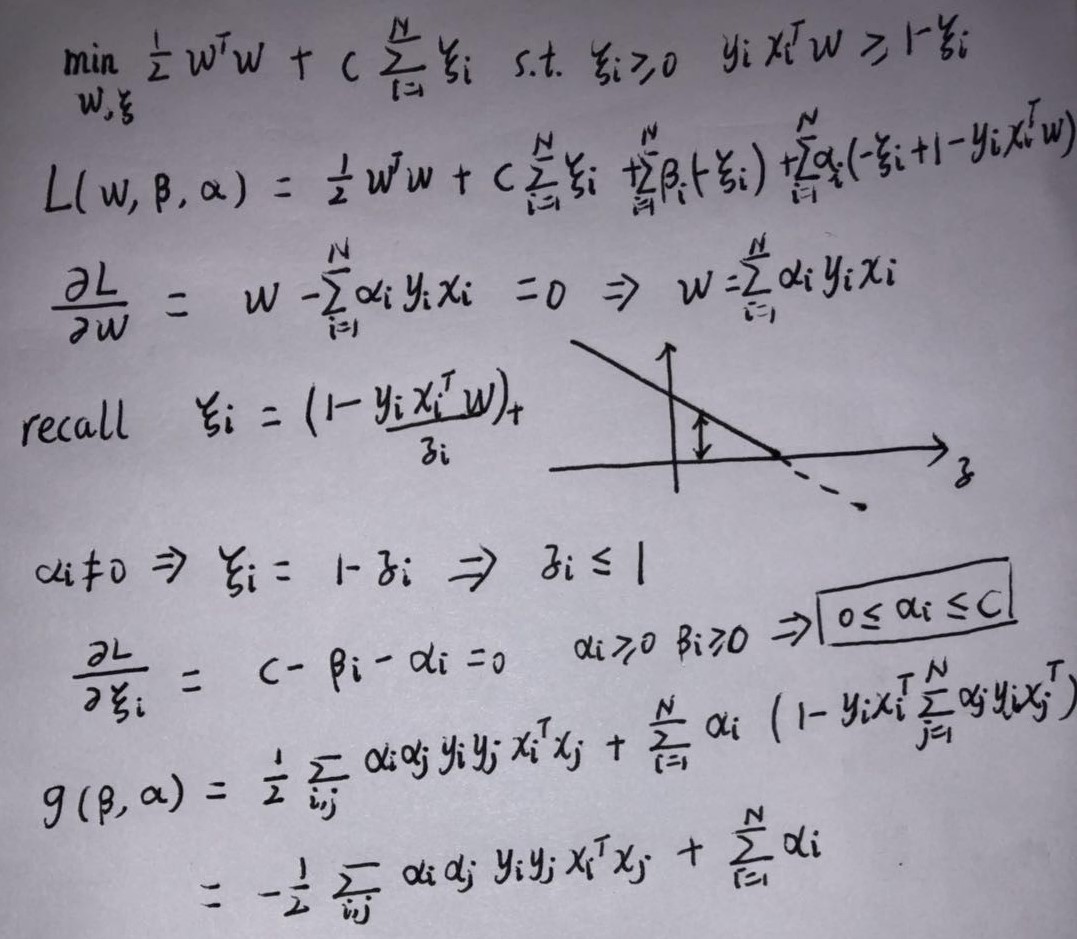 min_{w,ξ} ½ wᵀw + c Σ_{i=1}^{N} ξᵢ s.t. ξᵢ ≥ 0 yᵢ xᵢᵀ w ≥ 1-ξᵢ
L(w, β, α) = ½ wᵀw + c Σ_{i=1}^{N} ξᵢ + Σ_{i=1}^{N} βᵢ(-ξᵢ) + Σ_{i=1}^{N} αᵢ(-ξᵢ+1-yᵢxᵢᵀw)
∂L/∂w = w - Σ_{i=1}^{N} αᵢ yᵢ xᵢ = 0 ⇒ w = Σ_{i=1}^{N} αᵢ yᵢ xᵢ
recall ξᵢ = (1- yᵢ xᵢᵀ w)₊
zᵢ
z
αᵢ ≠ 0 ⇒ ξᵢ = 1-zᵢ ⇒ zᵢ ≤ 1
∂L/∂ξᵢ = c - βᵢ - αᵢ = 0 αᵢ ≥ 0 βᵢ ≥ 0 ⇒ 0 ≤ αᵢ ≤ C
g(β, α) = ½ Σ_{i,j} αᵢαⱼ yᵢyⱼ xᵢᵀxⱼ + Σ_{i=1}^{N} αᵢ (1- yᵢxᵢᵀ Σ_{j=1}^{N} αⱼyᵢxⱼᵀ)
= -½ Σ_{i,j} αᵢ αⱼ yᵢyⱼ xᵢᵀxⱼ + Σ_{i=1}^{N} αᵢ